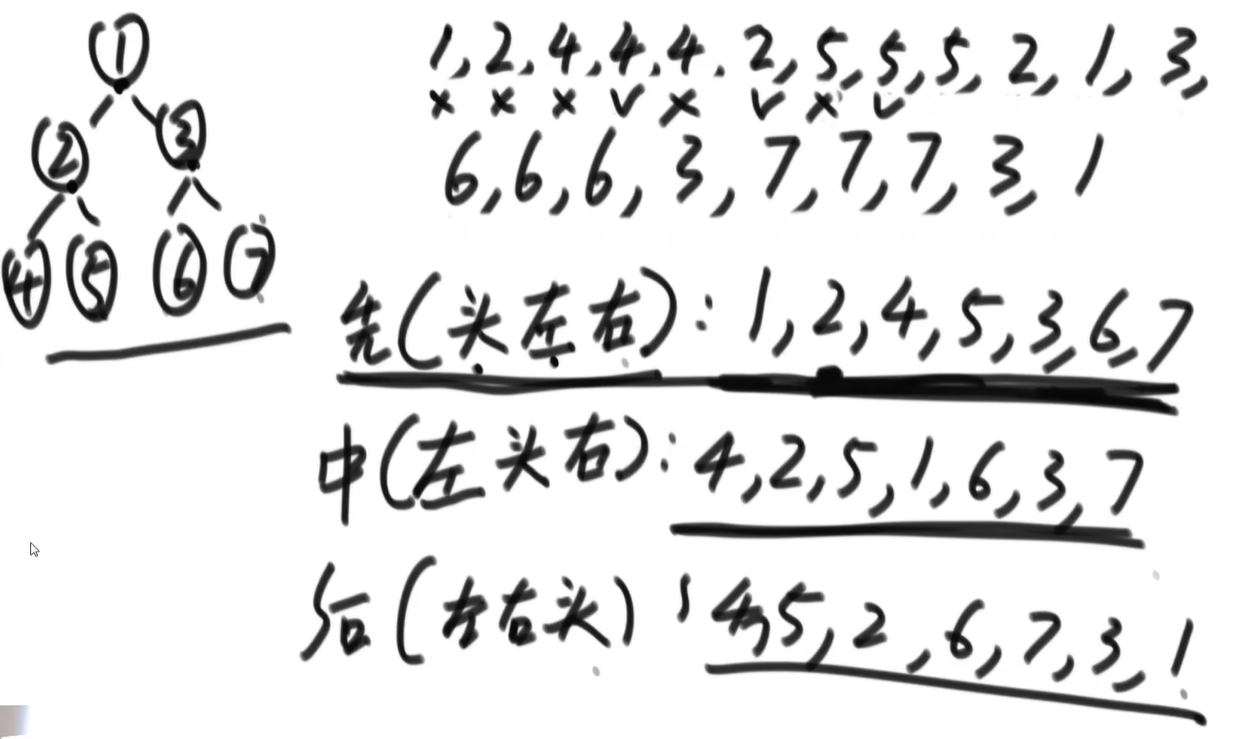 1
2 3
4 5 6 7
1,2,4,4,4,2,5,5,5,2,1,3,
x x x v x v x v
6,6,6,3,7,7,7,3,1
先(头左右):1,2,4,5,3,6,7
中(左头右):4,2,5,1,6,3,7
后(左右头):4,5,2,6,7,3,1